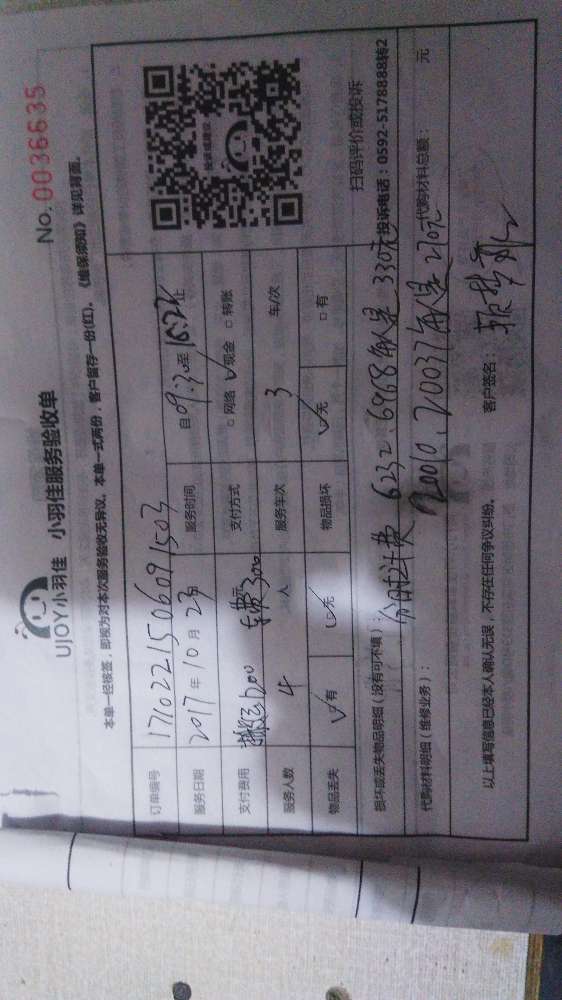 No. 0036635
UJOY小羽佳 小羽佳服务验收单
本单一经核签，即视为对本次服务验收无异议。本单一式两份，客户留存一份(红)。《维保须知》详见背面。
订单编号 171022150609 1503
服务日期 2017 年 10 月 23 日 服务时间 自 09:30 至 16:23 止
支付费用 搬运1200 车费300 元 支付方式 □ 网络 ✓ 现金 □ 转账
服务人数 4 人 服务车次 3 车/次
物品丢失 ✓ 有 ✓ 无 物品损坏 ✓ 无 □ 有
扫码评价或投诉
损坏或丢失物品明细（没有可不填）： 分时计费 6232、6968 每人是 330元 投诉电话：0592-5178888转2
代购材料明细（维修业务）： 20010、20037 每人是 270元 代购材料总额： 元
以上填写信息已经本人确认无误，不存在任何争议纠纷。 客户签名：